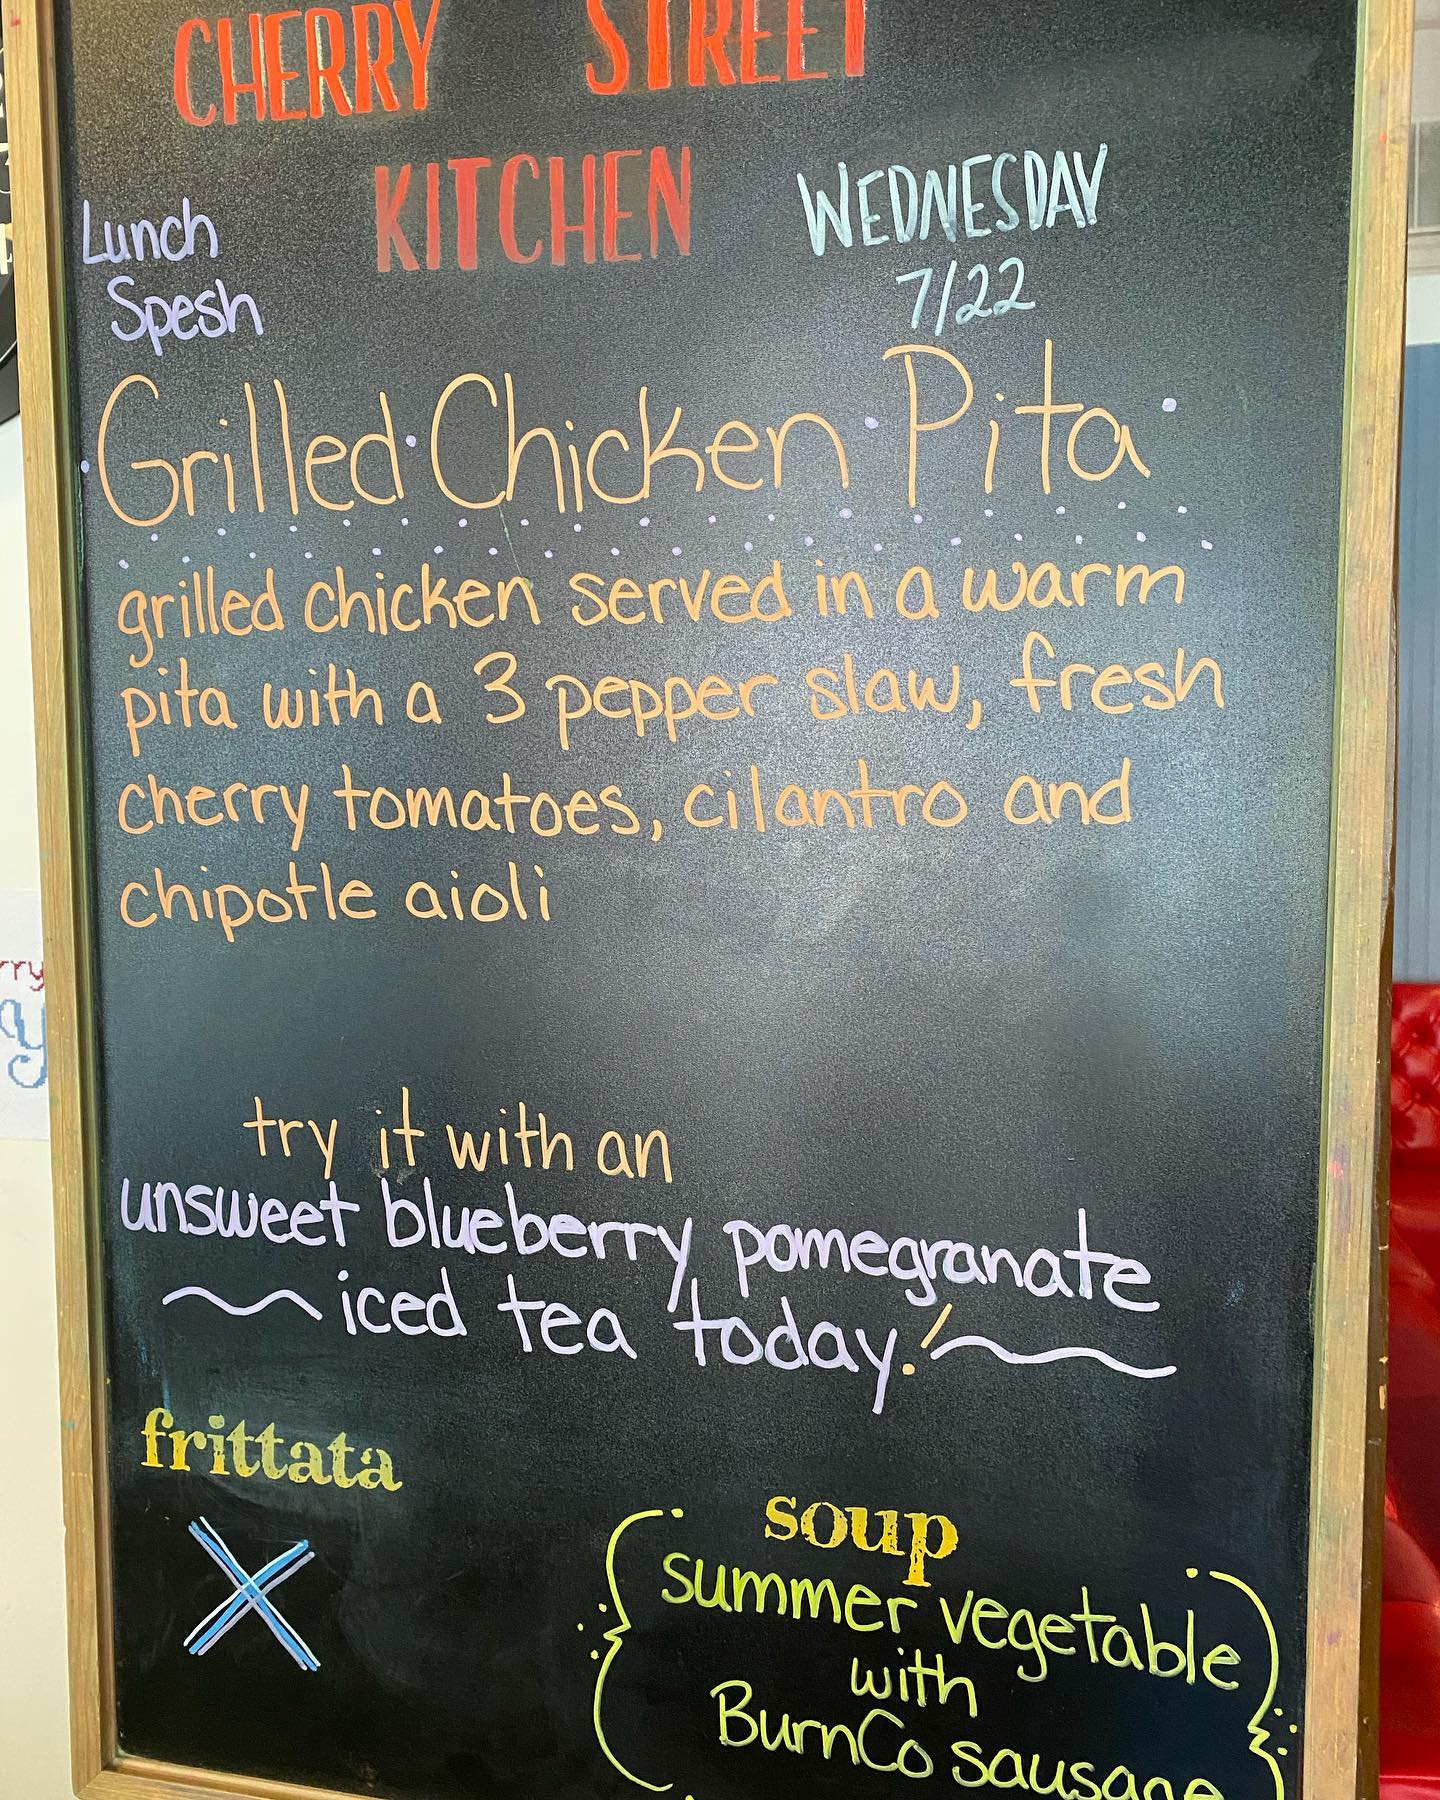 CHERRY STREET
KITCHEN
WEDNESDAY
7/22
Lunch
Spesh
Grilled Chicken Pita
grilled chicken served in a warm
pita with a 3 pepper slaw, fresh
cherry tomatoes, cilantro and
chipotle aioli
try it with an
unsweet blueberry pomegranate
iced tea today!
frittata
X
soup
summer vegetable
with
BurnCo sausage